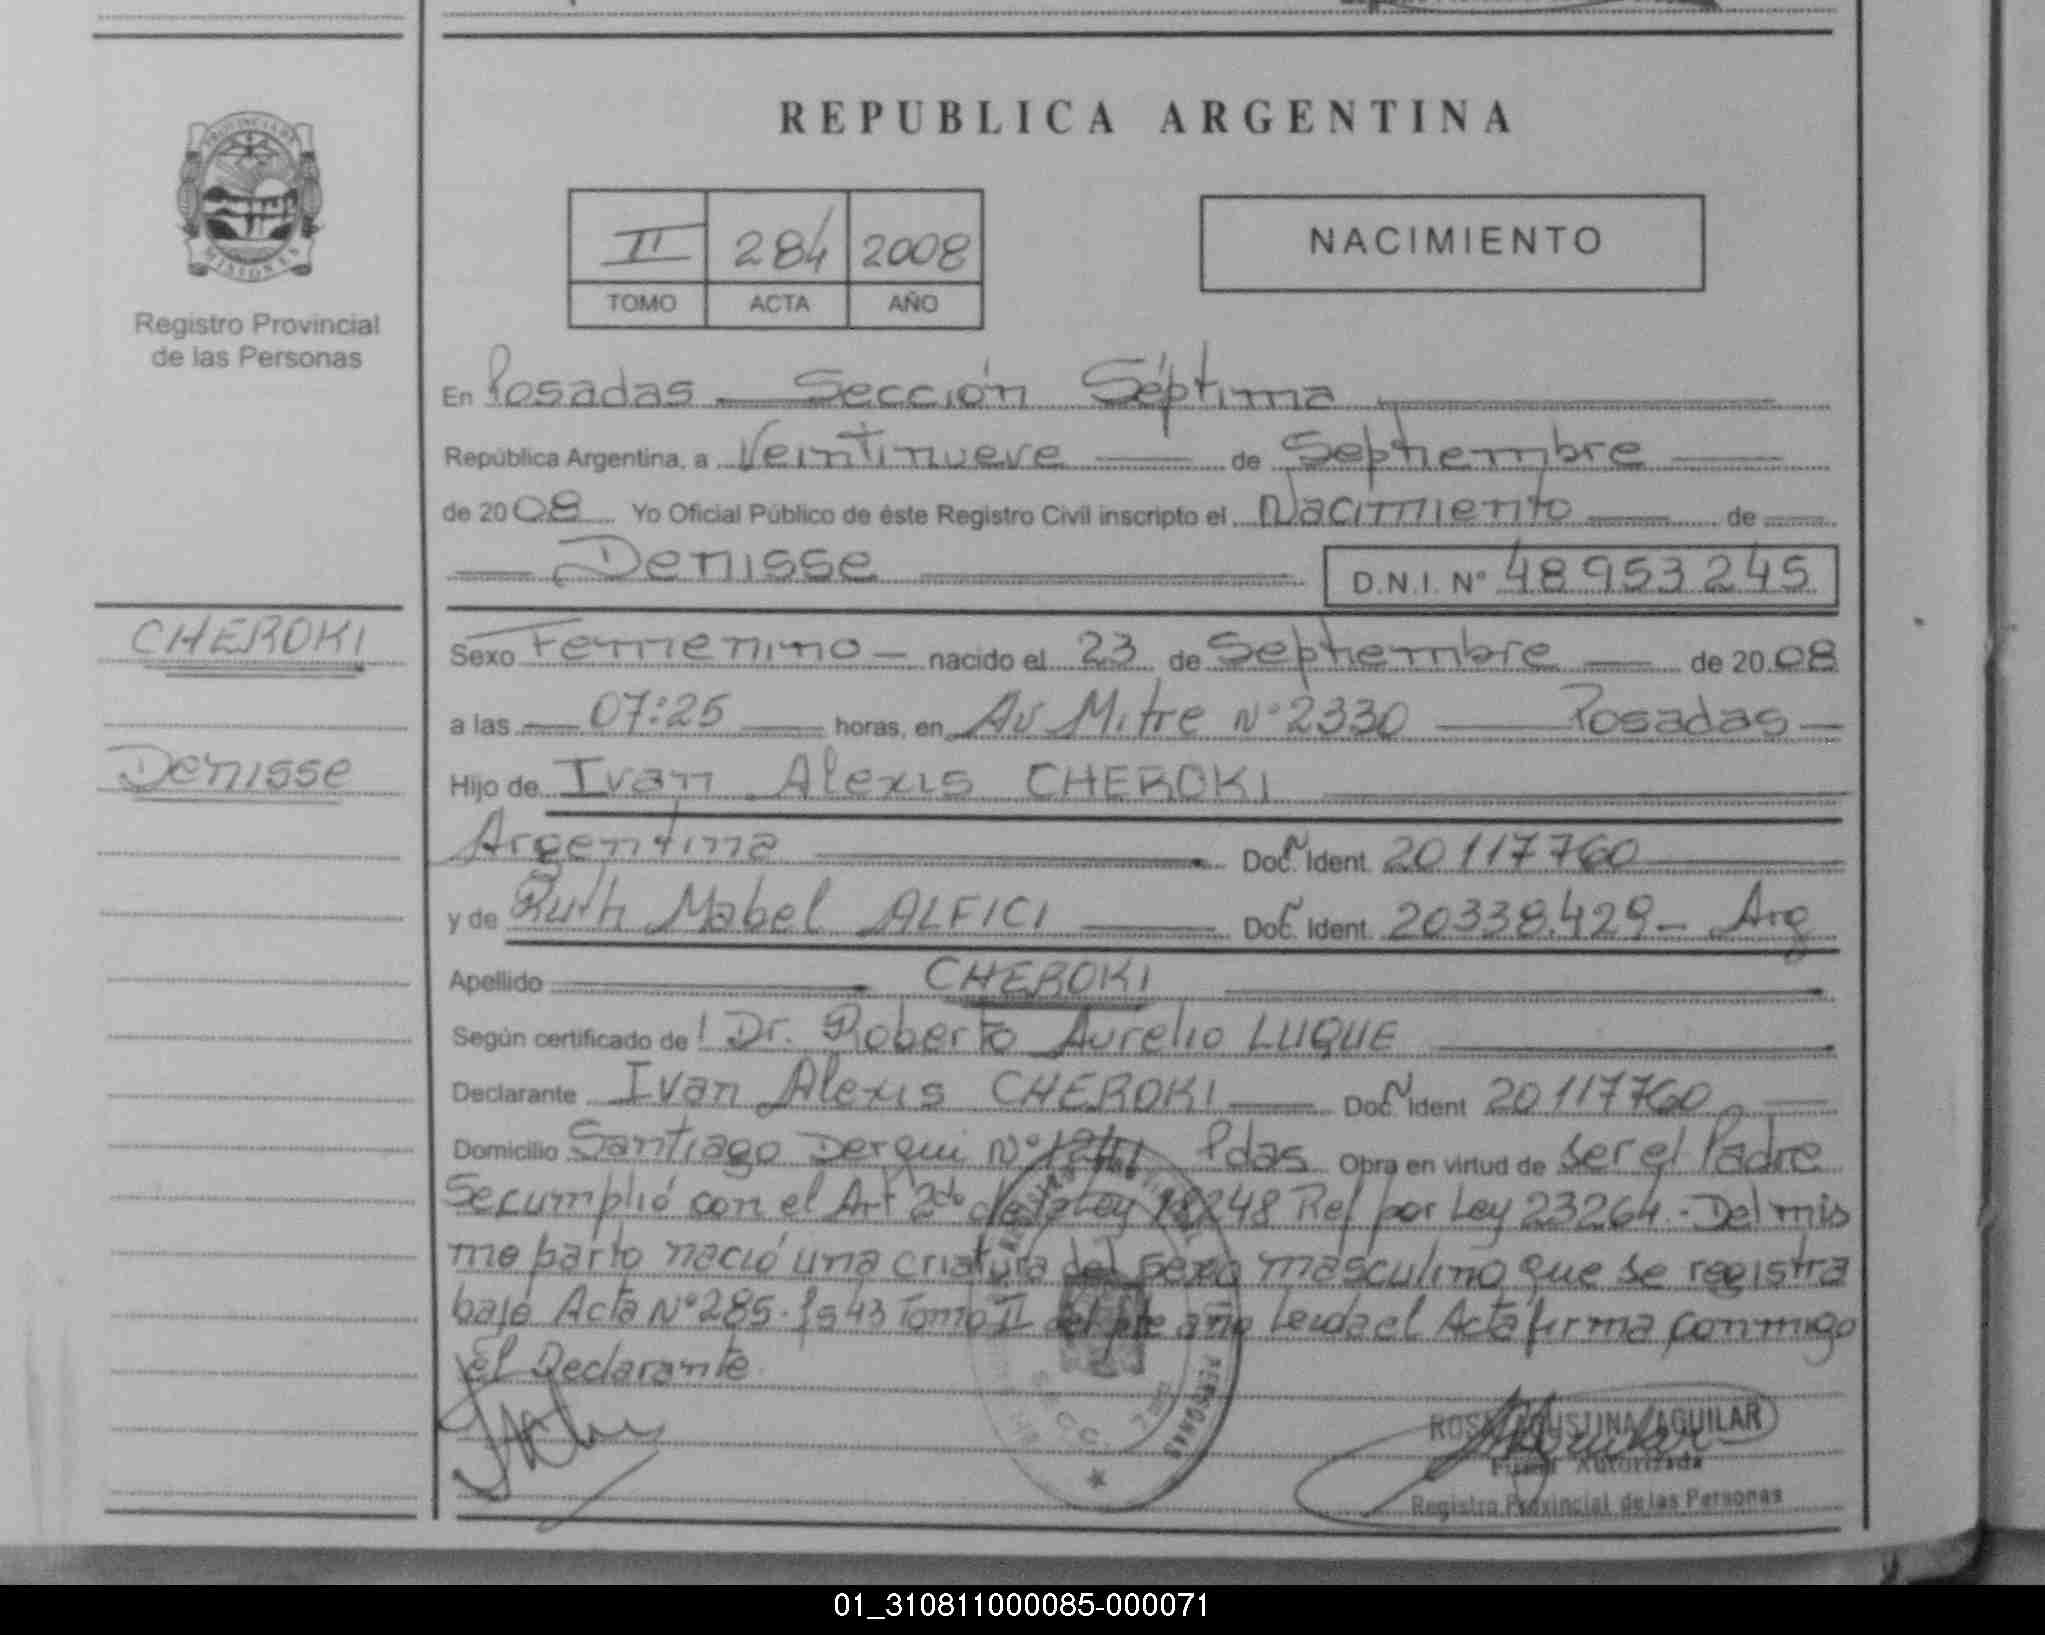 PROVINCIA DE
MISIONES
Registro Provincial
de las Personas
CHEROKI
Denisse
REPUBLICA ARGENTINA
II 284 2008
TOMO ACTA AÑO
NACIMIENTO
En Posadas Sección Séptima
República Argentina, a Veintinueve de Septiembre
de 2008 Yo Oficial Público de éste Registro Civil inscripto el Nacimiento de
Denisse D.N.I. Nº 48953245
Sexo Femenino nacido el 23 de Septiembre de 2008
a las 07:25 horas, en Av Mitre Nº 2330 Posadas
Hijo de Ivan Alexis CHEROKI
Argentina Doc. Ident. 20117760
y de Ruth Mabel ALFICI Doc. Ident. 20338.429 - Arg
Apellido CHEROKI
Según certificado de l Dr. Roberto Aurelio LUQUE
Declarante Ivan Alexis CHEROKI Doc. Ident 20117760
Domicilio Santiago Derqui Nº Pdas Obra en virtud de ser el Padre
Se cumplió con el Art 2do de la Ley 18248 Ref por Ley 23264.- Del mis
mo parto nació una criatura del sexo masculino que se registra
bajo Acta Nº 285. fs 43 Tomo II del pte año Leida el Acta firma conmigo
el Declarante.
PERSONAS
ROSA AGUSTINA AGUILAR
Firma Autorizada
Registro Provincial de las Personas
01_310811000085-000071